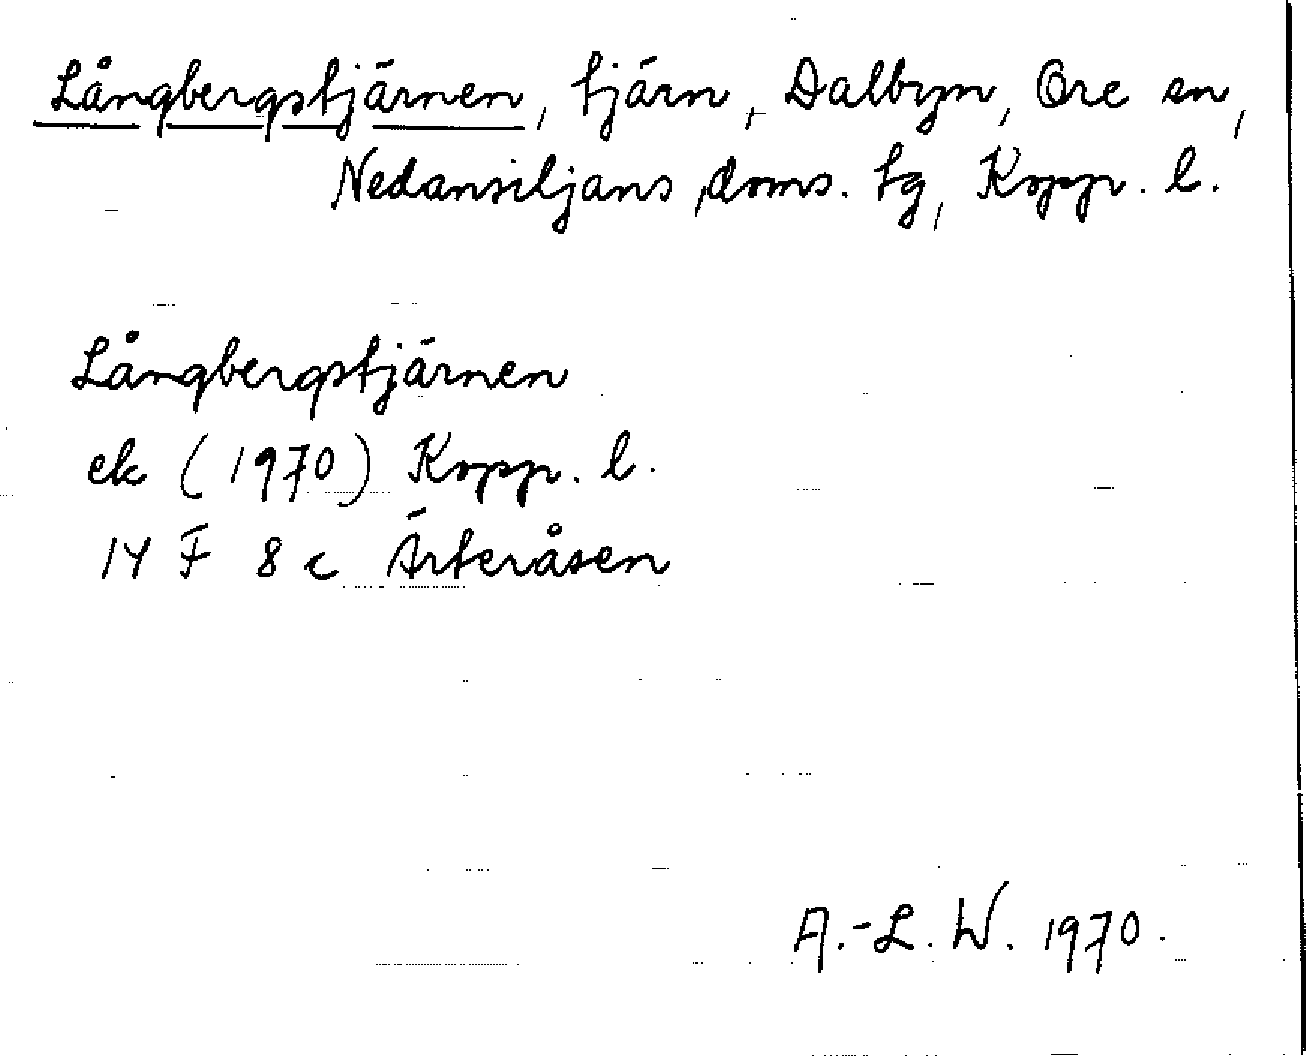 Långbergstjärnen, tjärn, Dalbyn, Ore sn,
Nedansiljans doms. tg, Kopp. l.
Långbergstjärnen
ek (1970) Kopp. l.
14 F 8 c Ärteråsen
A.-L. W. 1970.